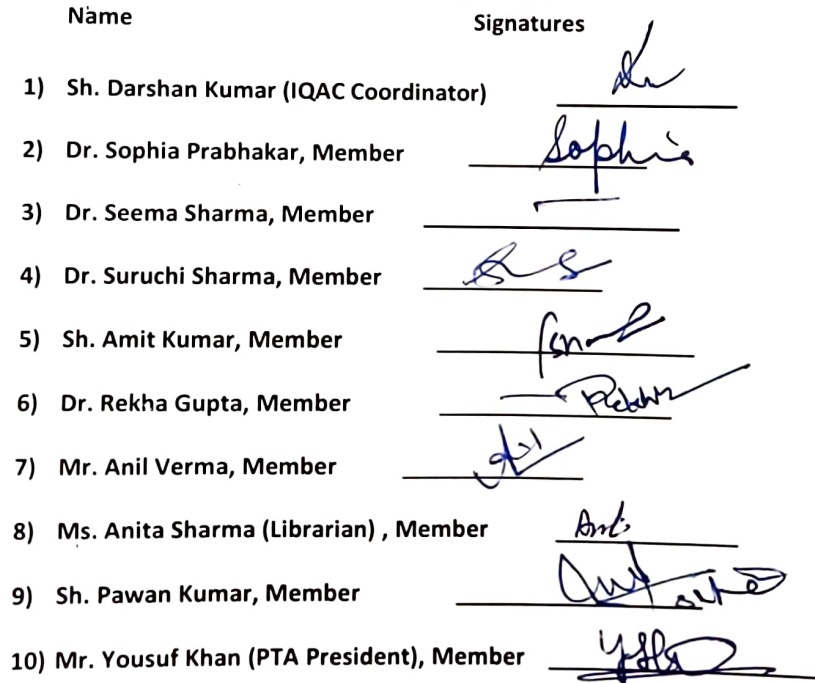 Name Signatures
1) Sh. Darshan Kumar (IQAC Coordinator)
2) Dr. Sophia Prabhakar, Member Sophia
3) Dr. Seema Sharma, Member
4) Dr. Suruchi Sharma, Member
5) Sh. Amit Kumar, Member
6) Dr. Rekha Gupta, Member
7) Mr. Anil Verma, Member
8) Ms. Anita Sharma (Librarian) , Member
9) Sh. Pawan Kumar, Member
10) Mr. Yousuf Khan (PTA President), Member